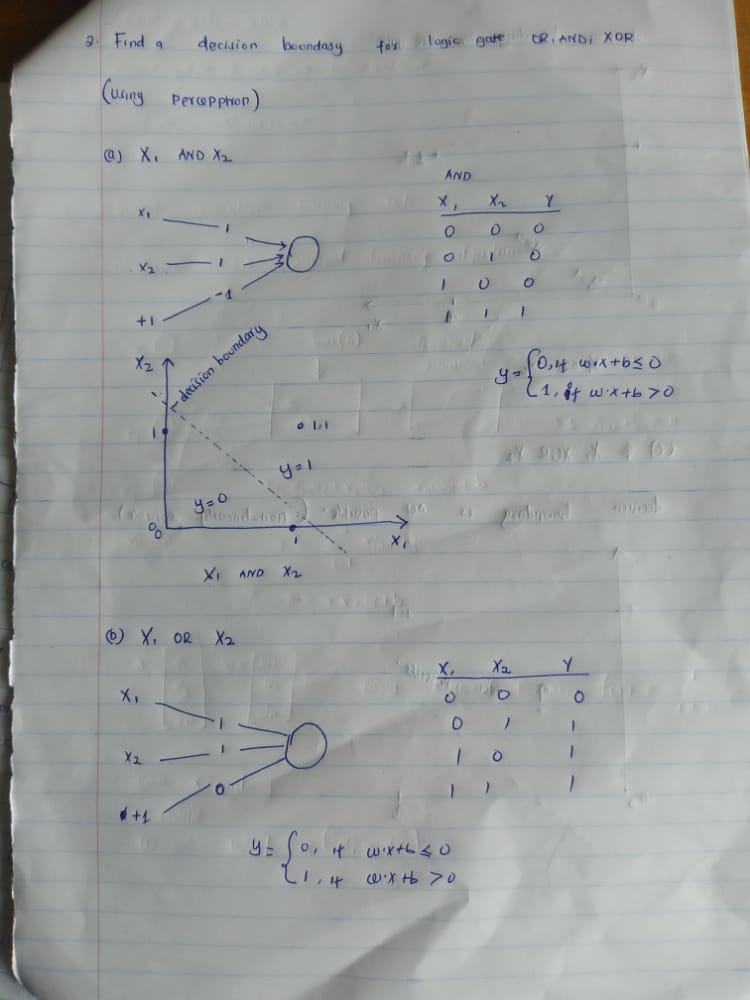 2. Find a decision boundary for logic gate OR, AND, XOR
(using percepptron)
(a) X1 AND X2
AND
X1 X2 Y
0 0 0
0 1 0
1 0 0
1 1 1
x1 1
x2 1
+1 -1
y = { 0, if w·x+b ≤ 0
1, if w·x+b > 0
X2
decision boundary
1
1,1
y=1
y=0
0
0
1
X1
X1 AND X2
(b) X1 OR X2
X1 X2 Y
0 0 0
0 1 1
1 0 1
1 1 1
X1 1
X2 1
+1 0
y = { 0, if w·x+b ≤ 0
1, if w·x+b > 0